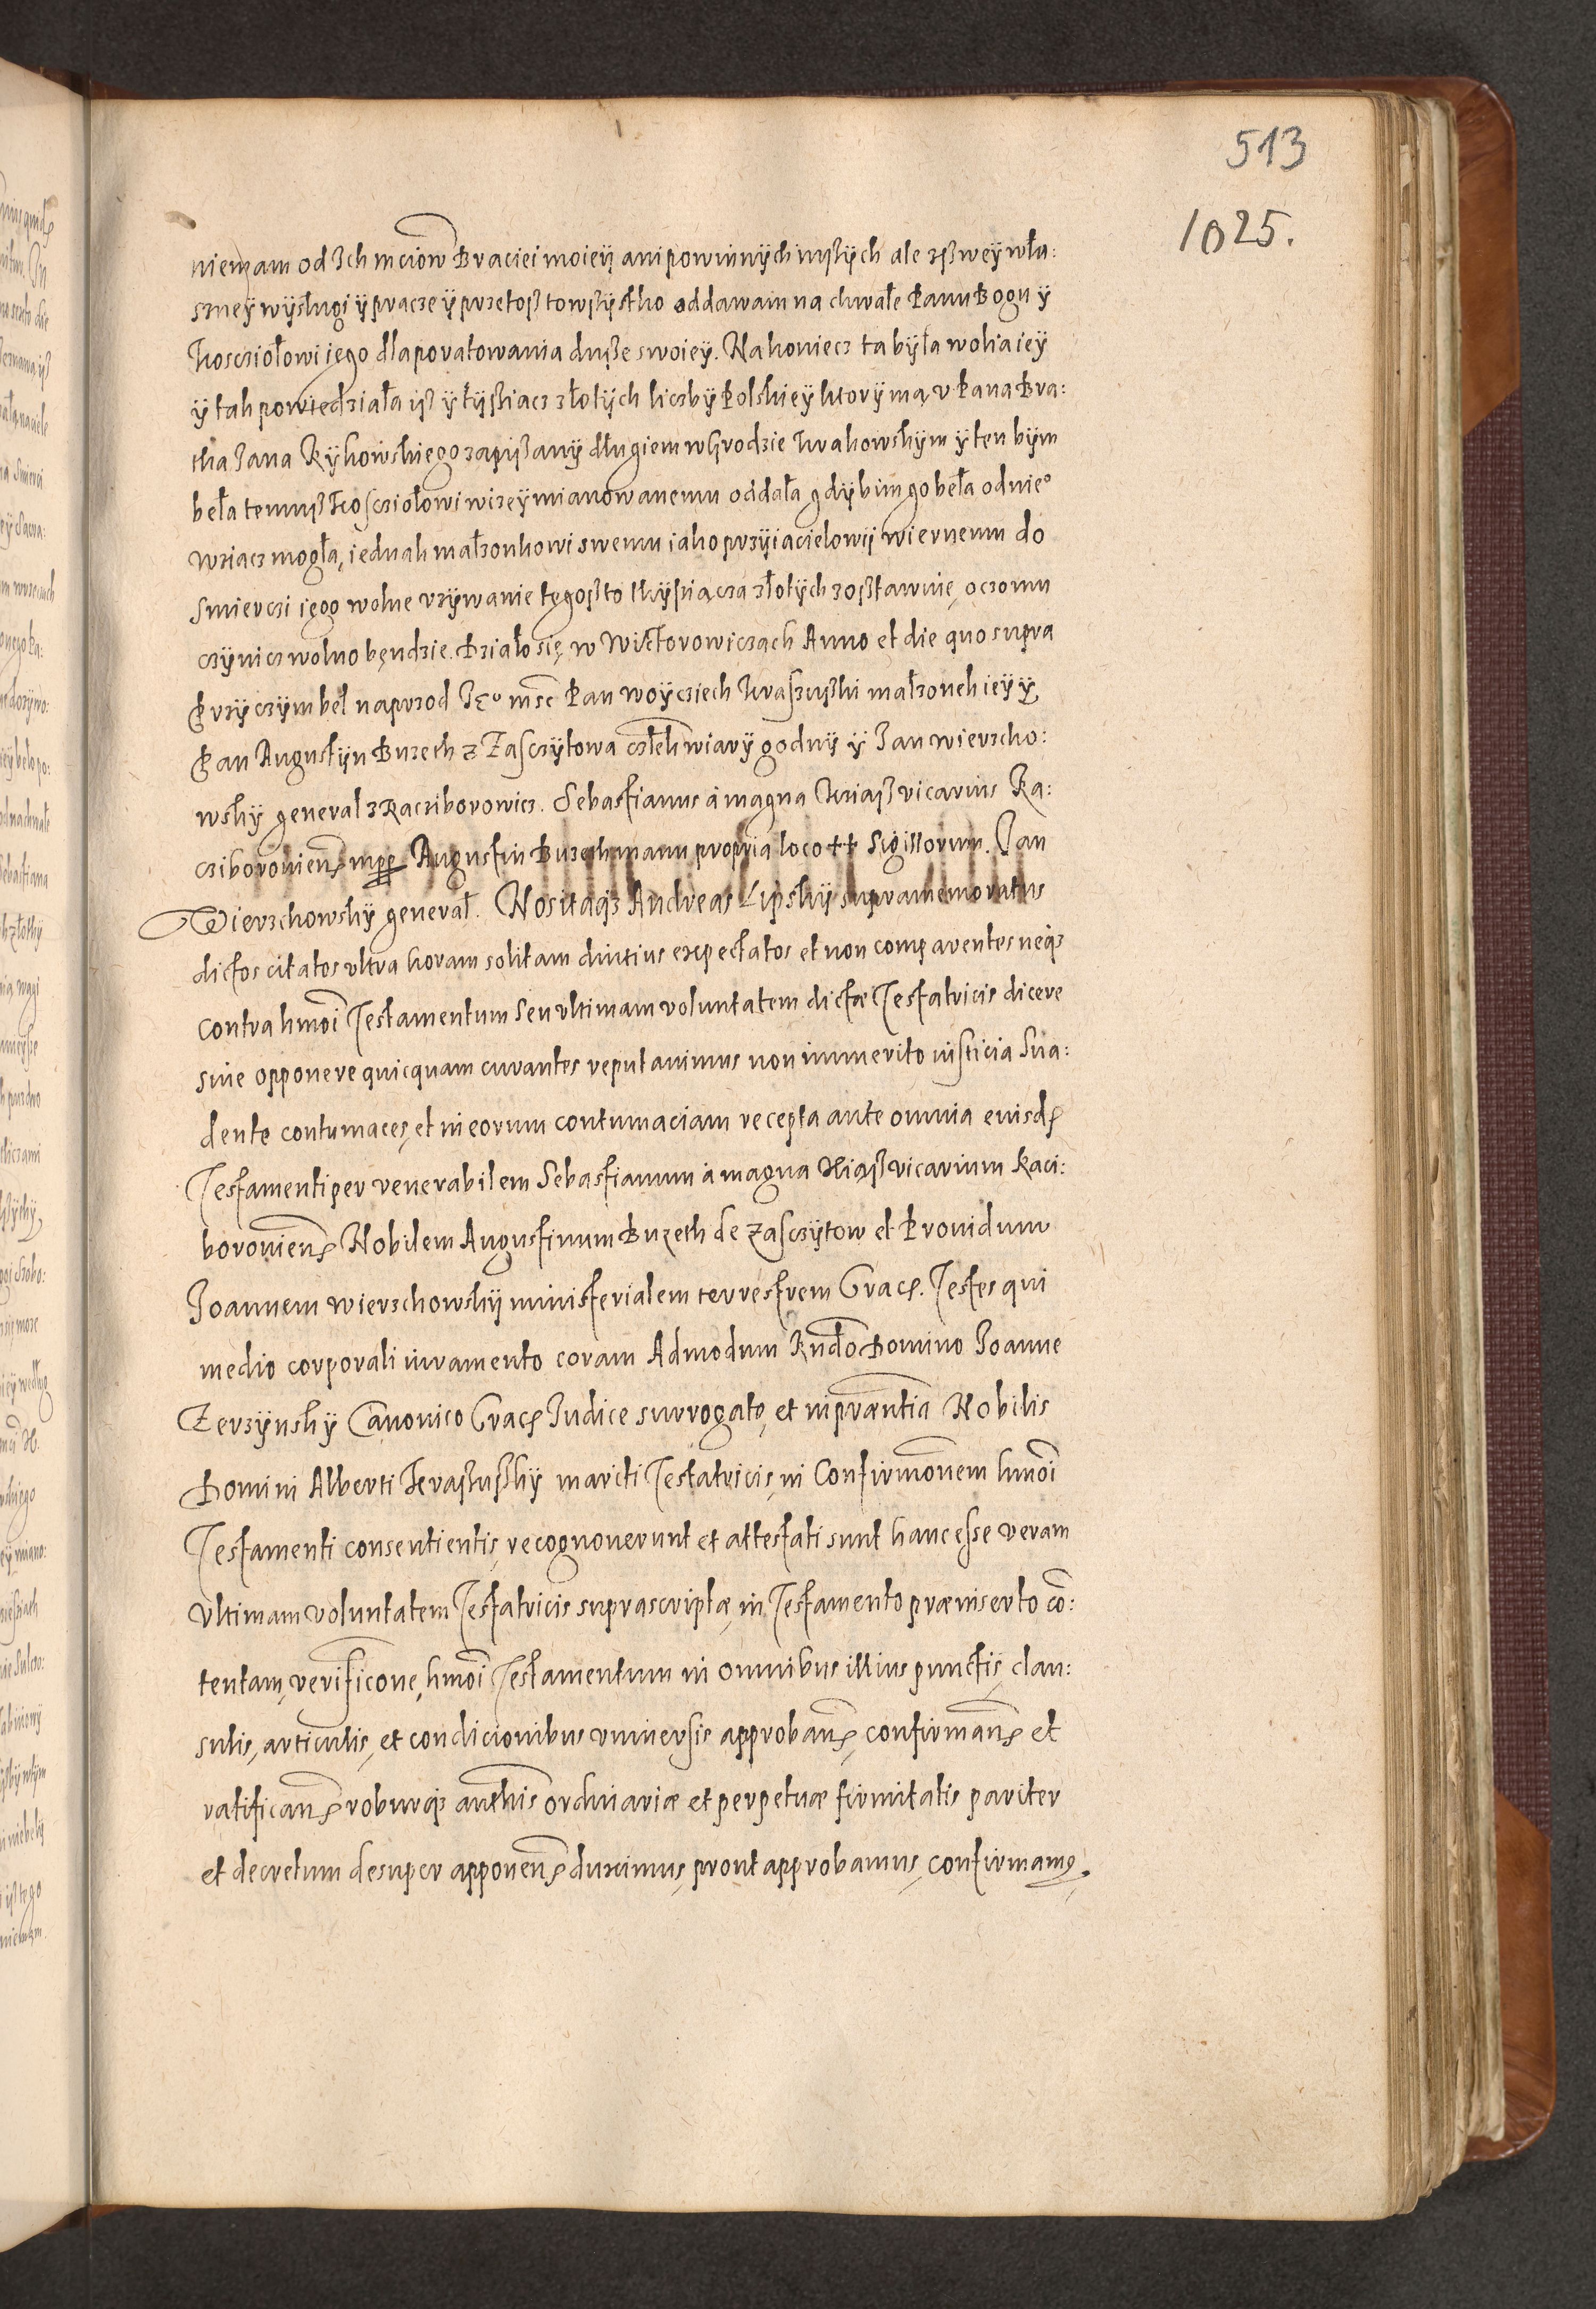 513
1025.
niemam od Ich mciow Braciei moieÿ ani powinnÿch inßÿch ale zßweÿ wła:
sneÿ wÿsługi ÿ pracze ÿ przetoß to wßÿstko oddawam na chwałe Panu Bogu ÿ
koscziołowi iego dla poratowania duße swoieÿ. Nakoniecz ta bÿła wolia ieÿ
ÿ tak powiedziała iß ÿ tÿßiacz złotÿch liczbÿ Polskieÿ ktorÿ ma v Pana Bra:
tha Jana Rÿkowskiego zapißanÿ długiem w Grodzie krakowskÿm ÿ ten bÿm
beła temuß koscziołowi wizeÿ mianowanemu oddała gdÿ bim go beła od nieº
wziacz mogła, iednak małzonkowi swemu iako przÿiacielowÿ wiernemu do
smierczi iego wolne vzÿwanie tegoßto tÿsiącza złotÿch zoßtawuie, oczomu
czÿnicz wolno bęndzie. Działo się w Wiktorowiczach Anno et die quo supra
Przÿ czÿm bel naprzod Jeº msc Pan Woÿcziech kraßußki małzonek ieÿ ÿ
Pan Augustÿn Buzeth z Zasczÿtowa człek wiarÿ godnÿ ÿ Jan wierzcho:
wskÿ general z Racziborowicz. Sebastianus à magna kziąß vicarius Ra:
cziborouien mpp Augustin Buzeth manu propria loco ++ sigillorum. Jan
Wierzchowskÿ generał. Nos itaqз Andreas Lipskÿ supramemoratus
dictos citatos vltra horam solitam diutius expectatos et non comparentes neqз
contra hmoi Testamentum seu vltimam voluntatem dictæ Testatricis dicere
siue opponere quicquam curantes reputauimus non immerito iusticia sua:
dente contumaces, et in eorum contumaciam recepta ante omnia eiusd
Testamenti per venerabilem Sebastianum à magna Xiąß vicarium Raci:
borouien Nobilem Augustinum Buzeth de Zasczÿtow et Prouidum
Joannem wierzchowskÿ ministerialem terrestrem Crac. Testes qui
medio corporali iuramento coram Admodum Rndo Domino Joanne
Zerzÿnskÿ Canonico Crac Iudice surrogato, et in præntia Nobilis
Domini Alberti Kraßußkÿ mariti Testatricis, in Confirmonem hmoi
Testamenti consentientis, recognouerunt et attestati sunt hanc esse veram
vltimam voluntatem Testatricis suprascriptæ, in Testamento præinserto co:
tentam, verificone, hmoi Testamentum in omnibus illius punctis, clau:
sulis, articulis, et condicionibus vniuersis approban, confirman et
ratifican roburqз authis ordinariæ et perpetuæ firmitatis pariter
et decretum desuper apponen duximus, prout approbamus, confirmamꝰ.